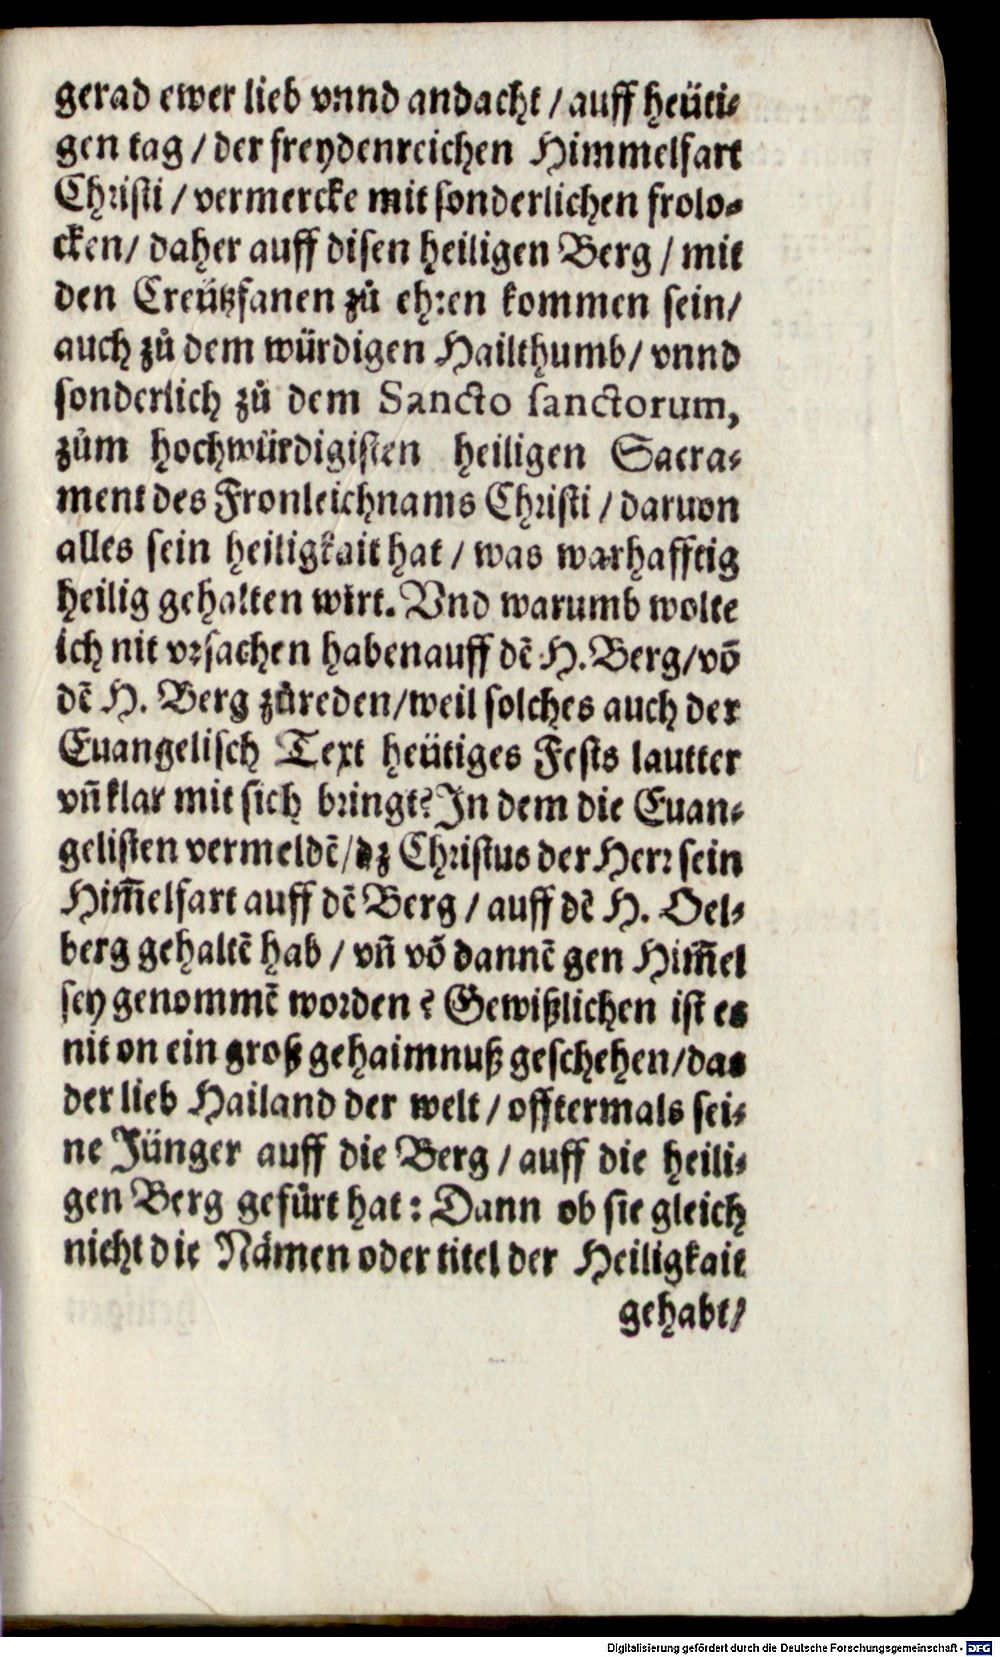 gerad ewer lieb vnnd andacht / auff heüti⸗
gen tag / der freydenreichen Himmelfart
Christi / vermercke mit sonderlichen frolo⸗
cken / daher auff disen heiligen Berg / mit
den Creützfanen zů ehren kommen sein /
auch zů dem würdigen Hailthumb / vnnd
sonderlich zů dem Sancto sanctorum,
zům hochwürdigisten heiligen Sacra⸗
ment des Fronleichnams Christi / daruon
alles sein heiligkait hat / was warhafftig
heilig gehalten wirt. Vnd warumb wolte
ich nit vrsachen habenauff dē H. Berg / vō
dē H. Berg zůreden / weil solches auch der
Euangelisch Text heütiges Fests lautter
vn̄ klar mit sich bringt? In dem die Euan⸗
gelisten vermeldē / dz Christus der Herr sein
Him̄elfart auff dē Berg / auff dē H. Oel⸗
berg gehaltē hab / vn̄ vō dannē gen Him̄el
sey genommē worden? Gewißlichen ist es
nit on ein groß gehaimnuß geschehen / das
der lieb Hailand der welt / offtermals sei⸗
ne Jünger auff die Berg / auff die heili⸗
gen Berg gefürt hat: Dann ob sie gleich
nicht die Nämen oder titel der Heiligkait
gehabt /
Digitalisierung gefördert durch die Deutsche Forschungsgemeinschaft - DFG